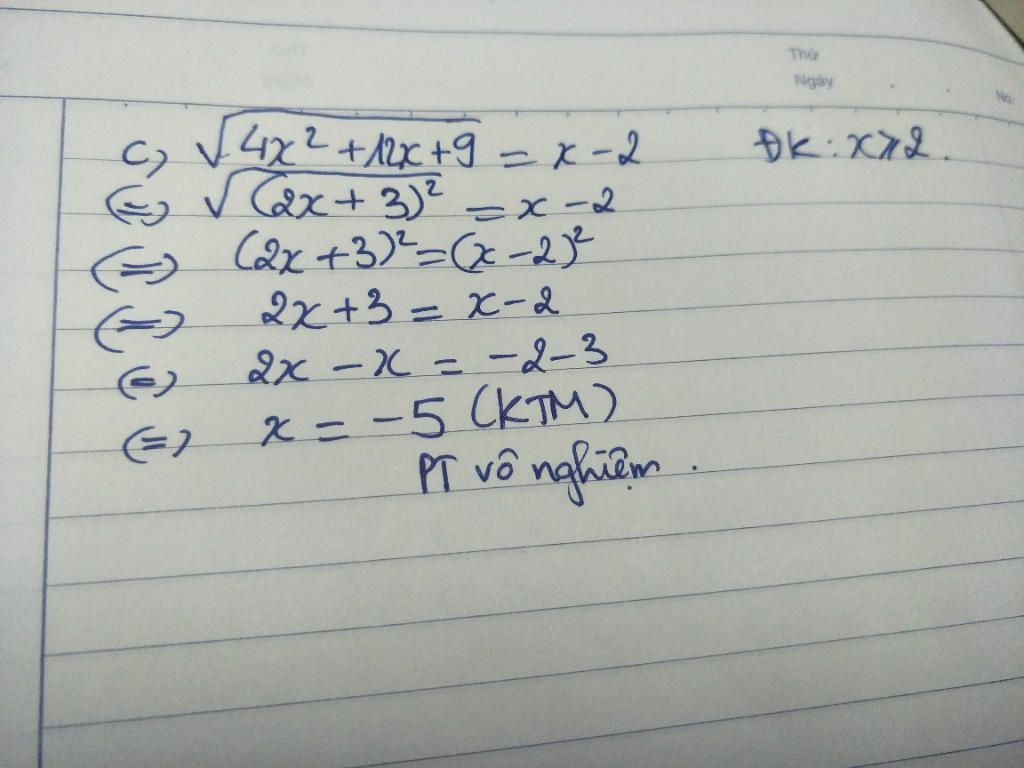 Thứ
Ngày
No.
c, √(4x² + 12x + 9) = x - 2 ĐK: x ⩾ 2.
(=) √((2x + 3)²) = x - 2
(=) (2x + 3)² = (x - 2)²
(=) 2x + 3 = x - 2
(=) 2x - x = -2 - 3
(=) x = -5 (KTM)
PT vô nghiệm.